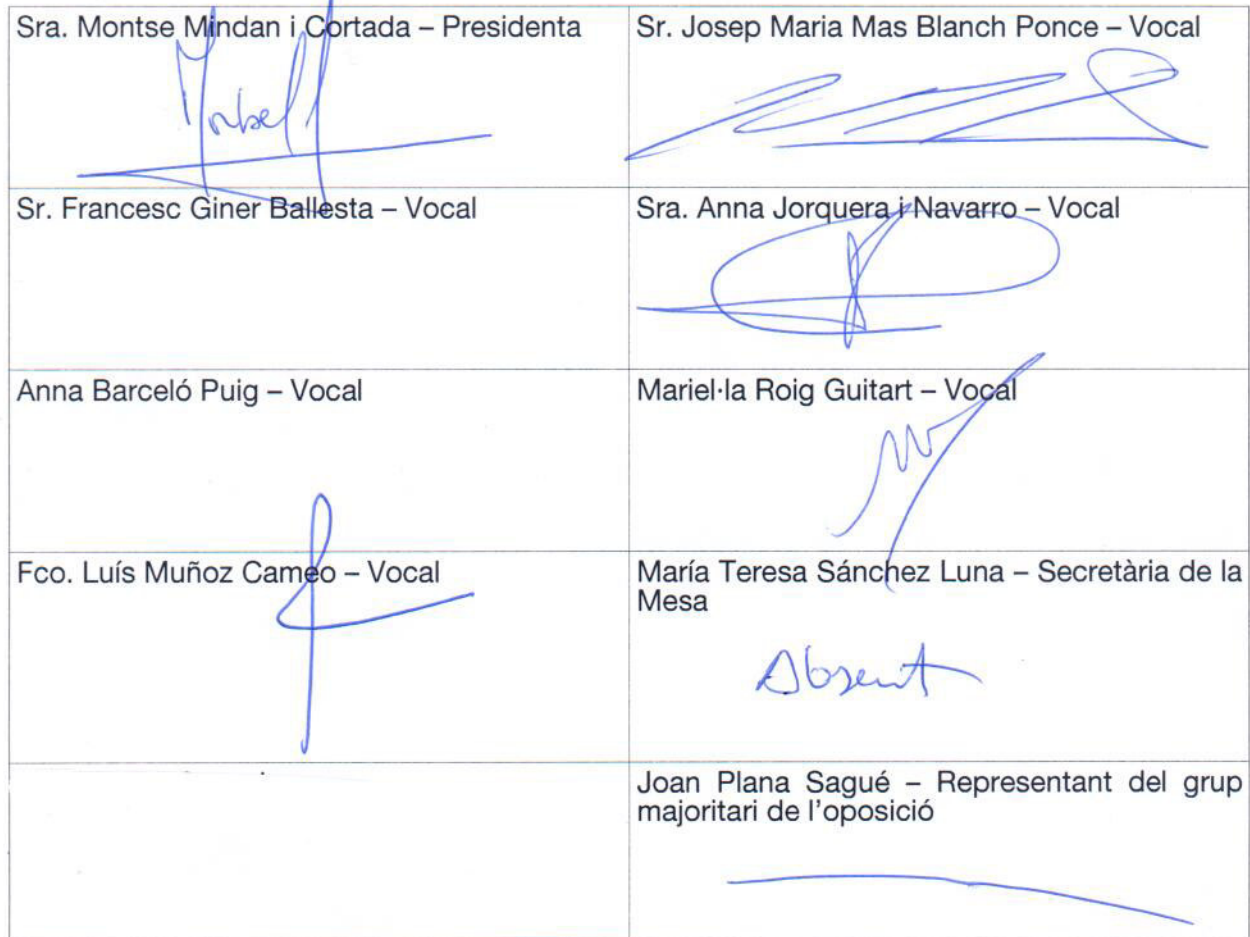 Sra. Montse Mindan i Cortada – Presidenta
Sr. Josep Maria Mas Blanch Ponce – Vocal
Sr. Francesc Giner Ballesta – Vocal
Sra. Anna Jorquera i Navarro – Vocal
Anna Barceló Puig – Vocal
Mariel·la Roig Guitart – Vocal
Fco. Luís Muñoz Cameo – Vocal
María Teresa Sánchez Luna – Secretària de la
Mesa
Absent
Joan Plana Sagué – Representant del grup
majoritari de l'oposició